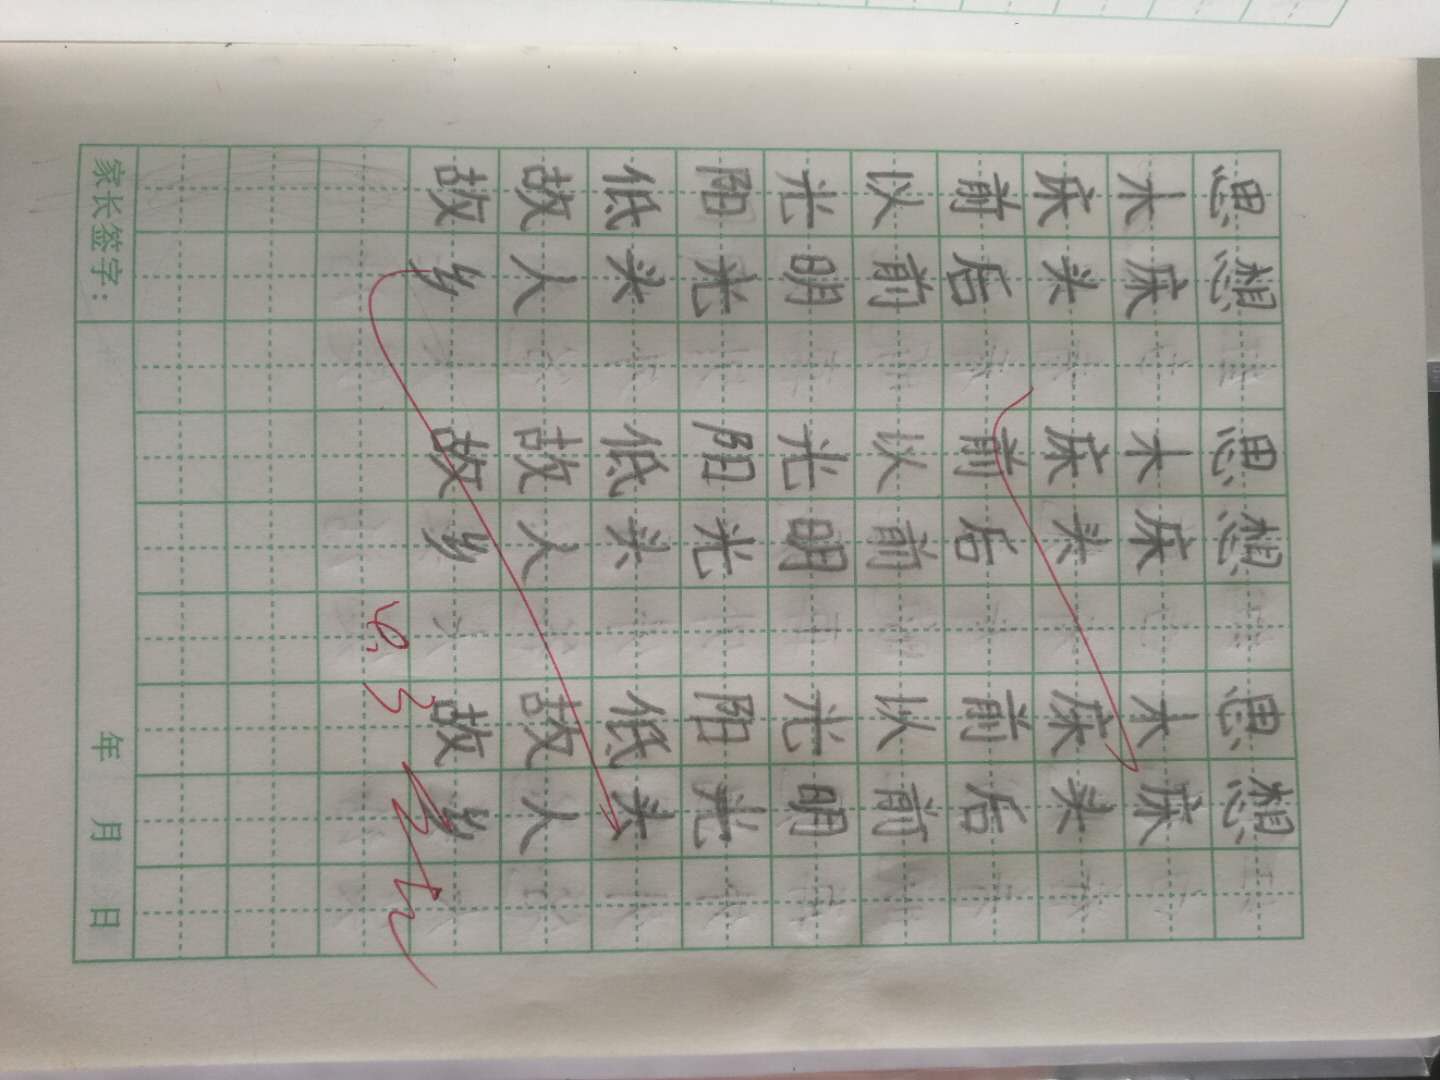 思想 思想 思想
木床 木床 木床
床头 床头 床头
前后 前后 前后
以前 以前 以前
光明 光明 光明
阳光 阳光 阳光
低头 低头 低头
故人 故人 故人
故乡 故乡 故乡
家长签字： 年 月 日